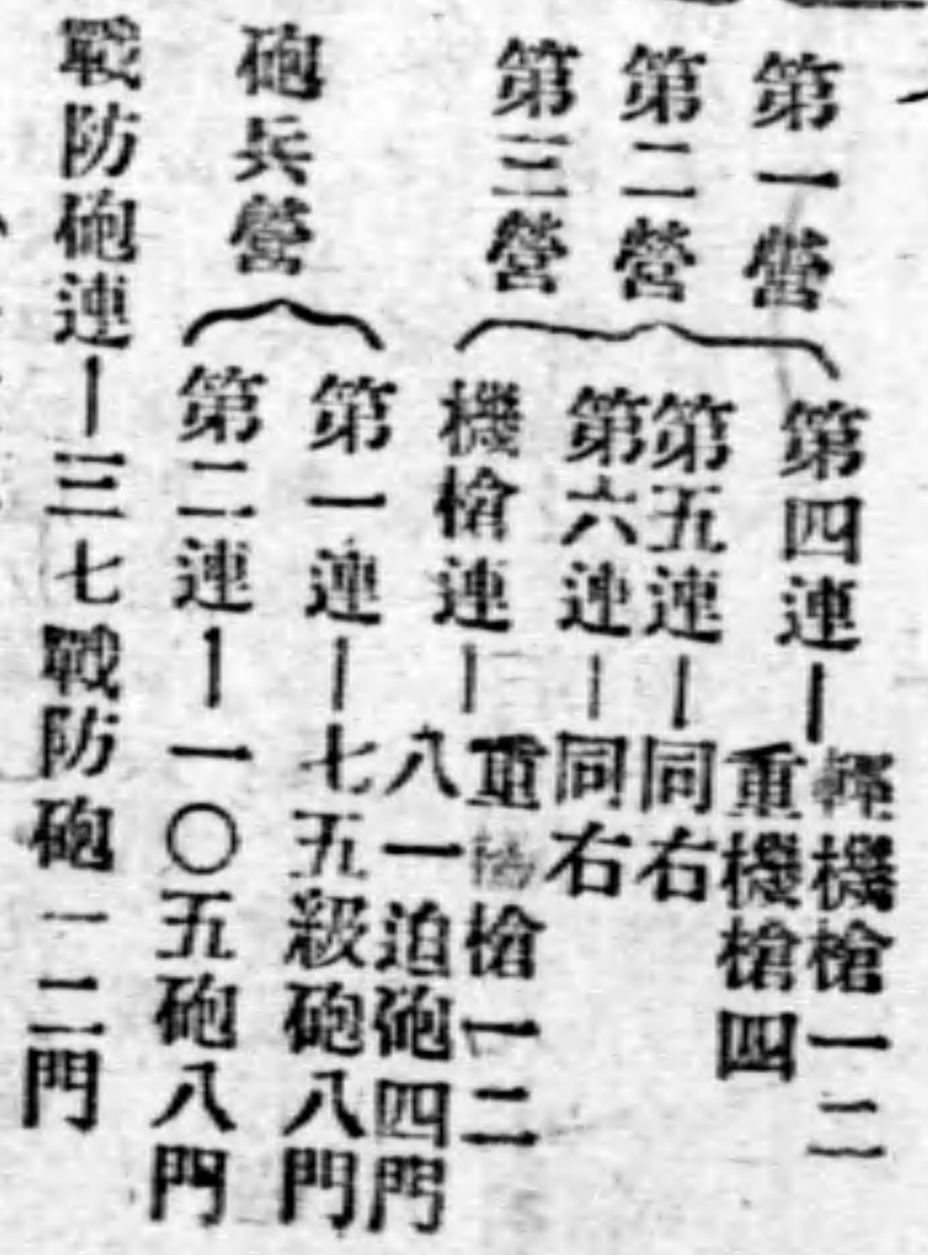 第一營
第二營
第三營
第四連—輕機槍一二
重機槍四
第五連—同右
第六連—同右
機槍連—重機槍一二
八一迫砲四門
砲兵營
第一連—七五級砲八門
第二連—一〇五砲八門
戰防砲連—三七戰防砲一二門